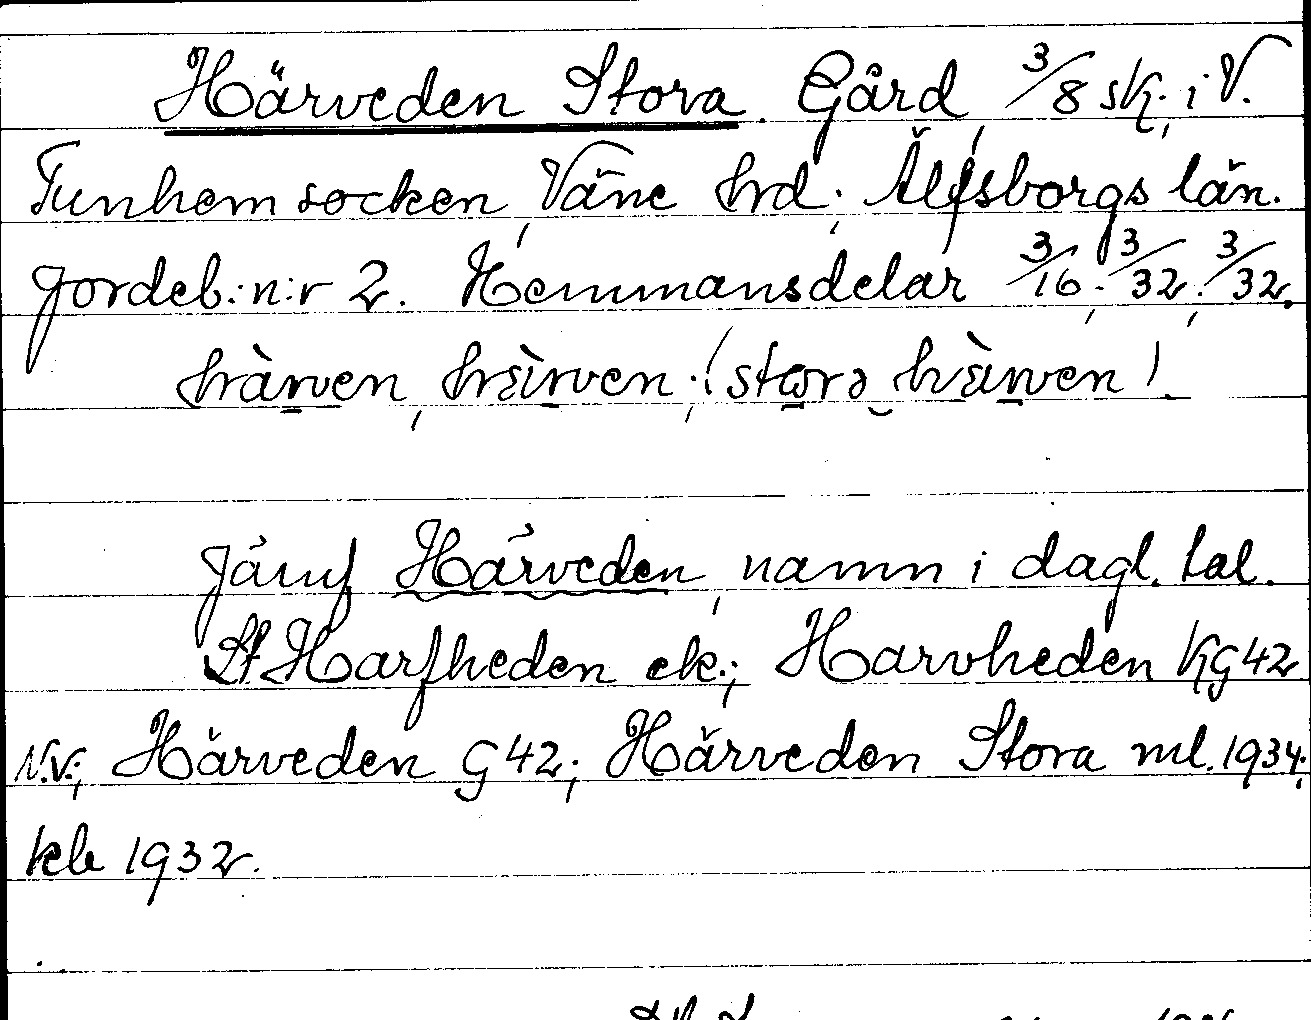 Härveden Stora. Gård, 3/8 sk; i V.
Tunhem socken, Väne hrd; Älfsborgs län.
Jordeb.:n:r 2. Hemmansdelar 3/16; 3/32; 3/32.
hàrven, hràrven; (stora hàrven).
Jämf Härveden, namn i dagl. tal.
St Harfheden ek.; Harvheden KG42
N.V.; Härveden G42; Härveden Stora ml. 1934;
kb 1932.